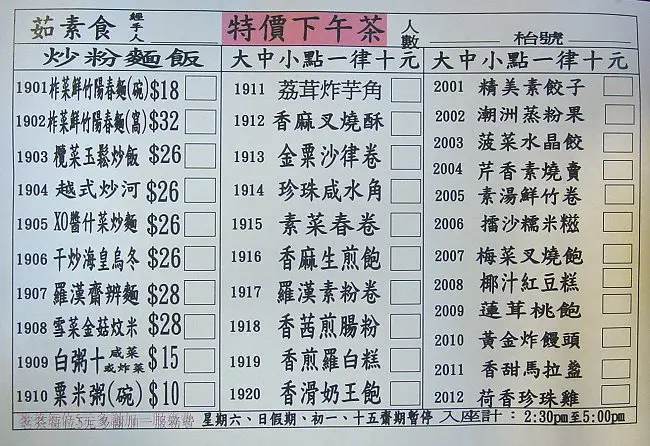 茹素食 經手人 特價下午茶 人數 枱號
炒粉麵飯
1901 炸菜鮮竹陽春麵(碗) $18
1902 炸菜鮮竹陽春麵(窩) $32
1903 欖菜玉鬆炒飯 $26
1904 越式炒河 $26
1905 XO醬什菜炒麵 $26
1906 干炒海皇烏冬 $26
1907 羅漢齋辦麵 $28
1908 雪菜金菇炆米 $28
1909 白粥十咸菜或炸菜 $15
1910 粟米粥(碗) $10
大中小點一律十元
1911 荔茸炸芋角
1912 香麻叉燒酥
1913 金粟沙律卷
1914 珍珠咸水角
1915 素菜春卷
1916 香麻生煎飽
1917 羅漢素粉卷
1918 香茜煎腸粉
1919 香煎羅白糕
1920 香滑奶王飽
大中小點一律十元
2001 精美素餃子
2002 潮洲蒸粉果
2003 菠菜水晶餃
2004 芹香素燒賣
2005 素湯鮮竹卷
2006 擂沙糯米糍
2007 梅菜叉燒飽
2008 椰汁紅豆糕
2009 蓮茸桃飽
2010 黃金炸饅頭
2011 香甜馬拉盞
2012 荷香珍珠雞
星期六、日假期、初一、十五齋期暫停 入座計：2:30pm至5:00pm